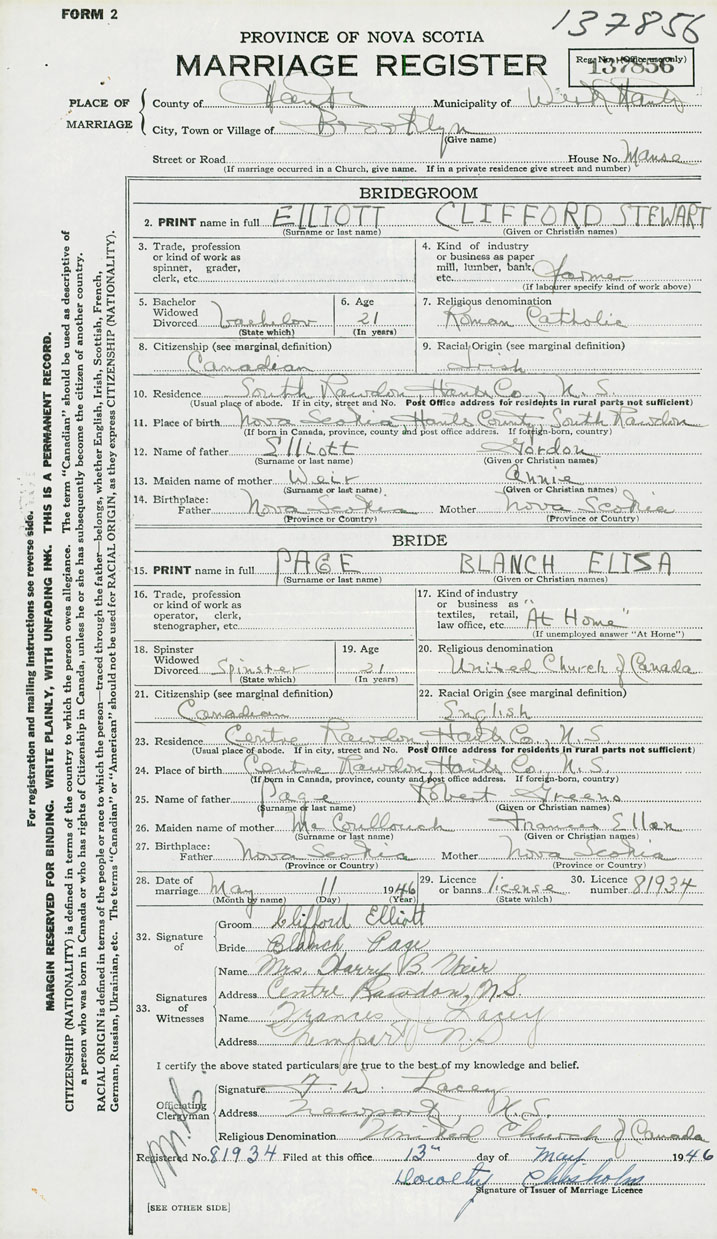 FORM 2
137856
PROVINCE OF NOVA SCOTIA
MARRIAGE REGISTER
Reg. No. (Office use only)
137856
PLACE OF MARRIAGE
County of Hants Municipality of West Hants
City, Town or Village of Brooklyn
(Give name)
Street or Road House No. Manse
(If marriage occurred in a Church, give name. If in a private residence give street and number)
BRIDEGROOM
2. PRINT name in full ELLIOTT CLIFFORD STEWART
(Surname or last name) (Given or Christian names)
3. Trade, profession or kind of work as spinner, grader, clerk, etc.
4. Kind of industry or business as paper mill, lumber, bank, etc. farmer
(If labourer specify kind of work above)
5. Bachelor Widowed Divorced bachelor
(State which)
6. Age 21
(In years)
7. Religious denomination
Roman Catholic
8. Citizenship (see marginal definition)
Canadian
9. Racial Origin (see marginal definition)
Irish
10. Residence South Rawdon Hants Co., N.S.
(Usual place of abode. If in city, street and No. Post Office address for residents in rural parts not sufficient)
11. Place of birth Nova Scotia, Hants County, South Rawdon
(If born in Canada, province, county and post office address. If foreign-born, country)
12. Name of father Elliott Gordon
(Surname or last name) (Given or Christian names)
13. Maiden name of mother Weir Annie
(Surname or last name) (Given or Christian names)
14. Birthplace: Father Nova Scotia Mother Nova Scotia
(Province or Country) (Province or Country)
BRIDE
15. PRINT name in full PAGE BLANCH ELISA
(Surname or last name) (Given or Christian names)
16. Trade, profession or kind of work as operator, clerk, stenographer, etc.
17. Kind of industry or business as textiles, retail, law office, etc. "At Home"
(If unemployed answer "At Home")
18. Spinster Widowed Divorced Spinster
(State which)
19. Age 21
(In years)
20. Religious denomination
United Church of Canada
21. Citizenship (see marginal definition)
Canadian
22. Racial Origin (see marginal definition)
English
23. Residence Centre Rawdon, Hants Co., N.S.
(Usual place of abode. If in city, street and No. Post Office address for residents in rural parts not sufficient)
24. Place of birth Centre Rawdon, Hants Co., N.S.
(If born in Canada, province, county and post office address. If foreign-born, country)
25. Name of father Page Robert Greeno
(Surname or last name) (Given or Christian names)
26. Maiden name of mother Francis Ellen
(Surname or last name) (Given or Christian names)
27. Birthplace: Father Nova Scotia Mother Nova Scotia
(Province or Country) (Province or Country)
28. Date of marriage May 11 1946
(Month by name) (Day) (Year)
29. Licence or banns license
(State which)
30. Licence number 81934
32. Signature of
Groom Clifford Elliott
Bride Blanch Page
33. Signatures of Witnesses
Name Mrs. Harry B. Weir
Address Centre Rawdon, N.S.
Name Frances J. Lacey
Address Newport N.S.
I certify the above stated particulars are true to the best of my knowledge and belief.
Officiating Clergyman
Signature F. W. Lacey
Address Newport, N.S.
Religious Denomination United Church of Canada
Registered No. 81934 Filed at this office 13th day of May 1946
Dorothy Chisholm
Signature of Issuer of Marriage Licence
[SEE OTHER SIDE]
For registration and mailing instructions see reverse side.
MARGIN RESERVED FOR BINDING. WRITE PLAINLY, WITH UNFADING INK. THIS IS A PERMANENT RECORD.
CITIZENSHIP (NATIONALITY) is defined in terms of the country to which the person owes allegiance. The term "Canadian" should be used as descriptive of
a person who was born in Canada or who has rights of Citizenship in Canada, unless he or she has subsequently become the citizen of another country.
RACIAL ORIGIN is defined in terms of the people or race to which the person—traced through the father—belongs, whether English, Irish, Scottish, French,
German, Russian, Ukrainian, etc. The terms "Canadian" or "American" should not be used for RACIAL ORIGIN, as they express CITIZENSHIP (NATIONALITY).